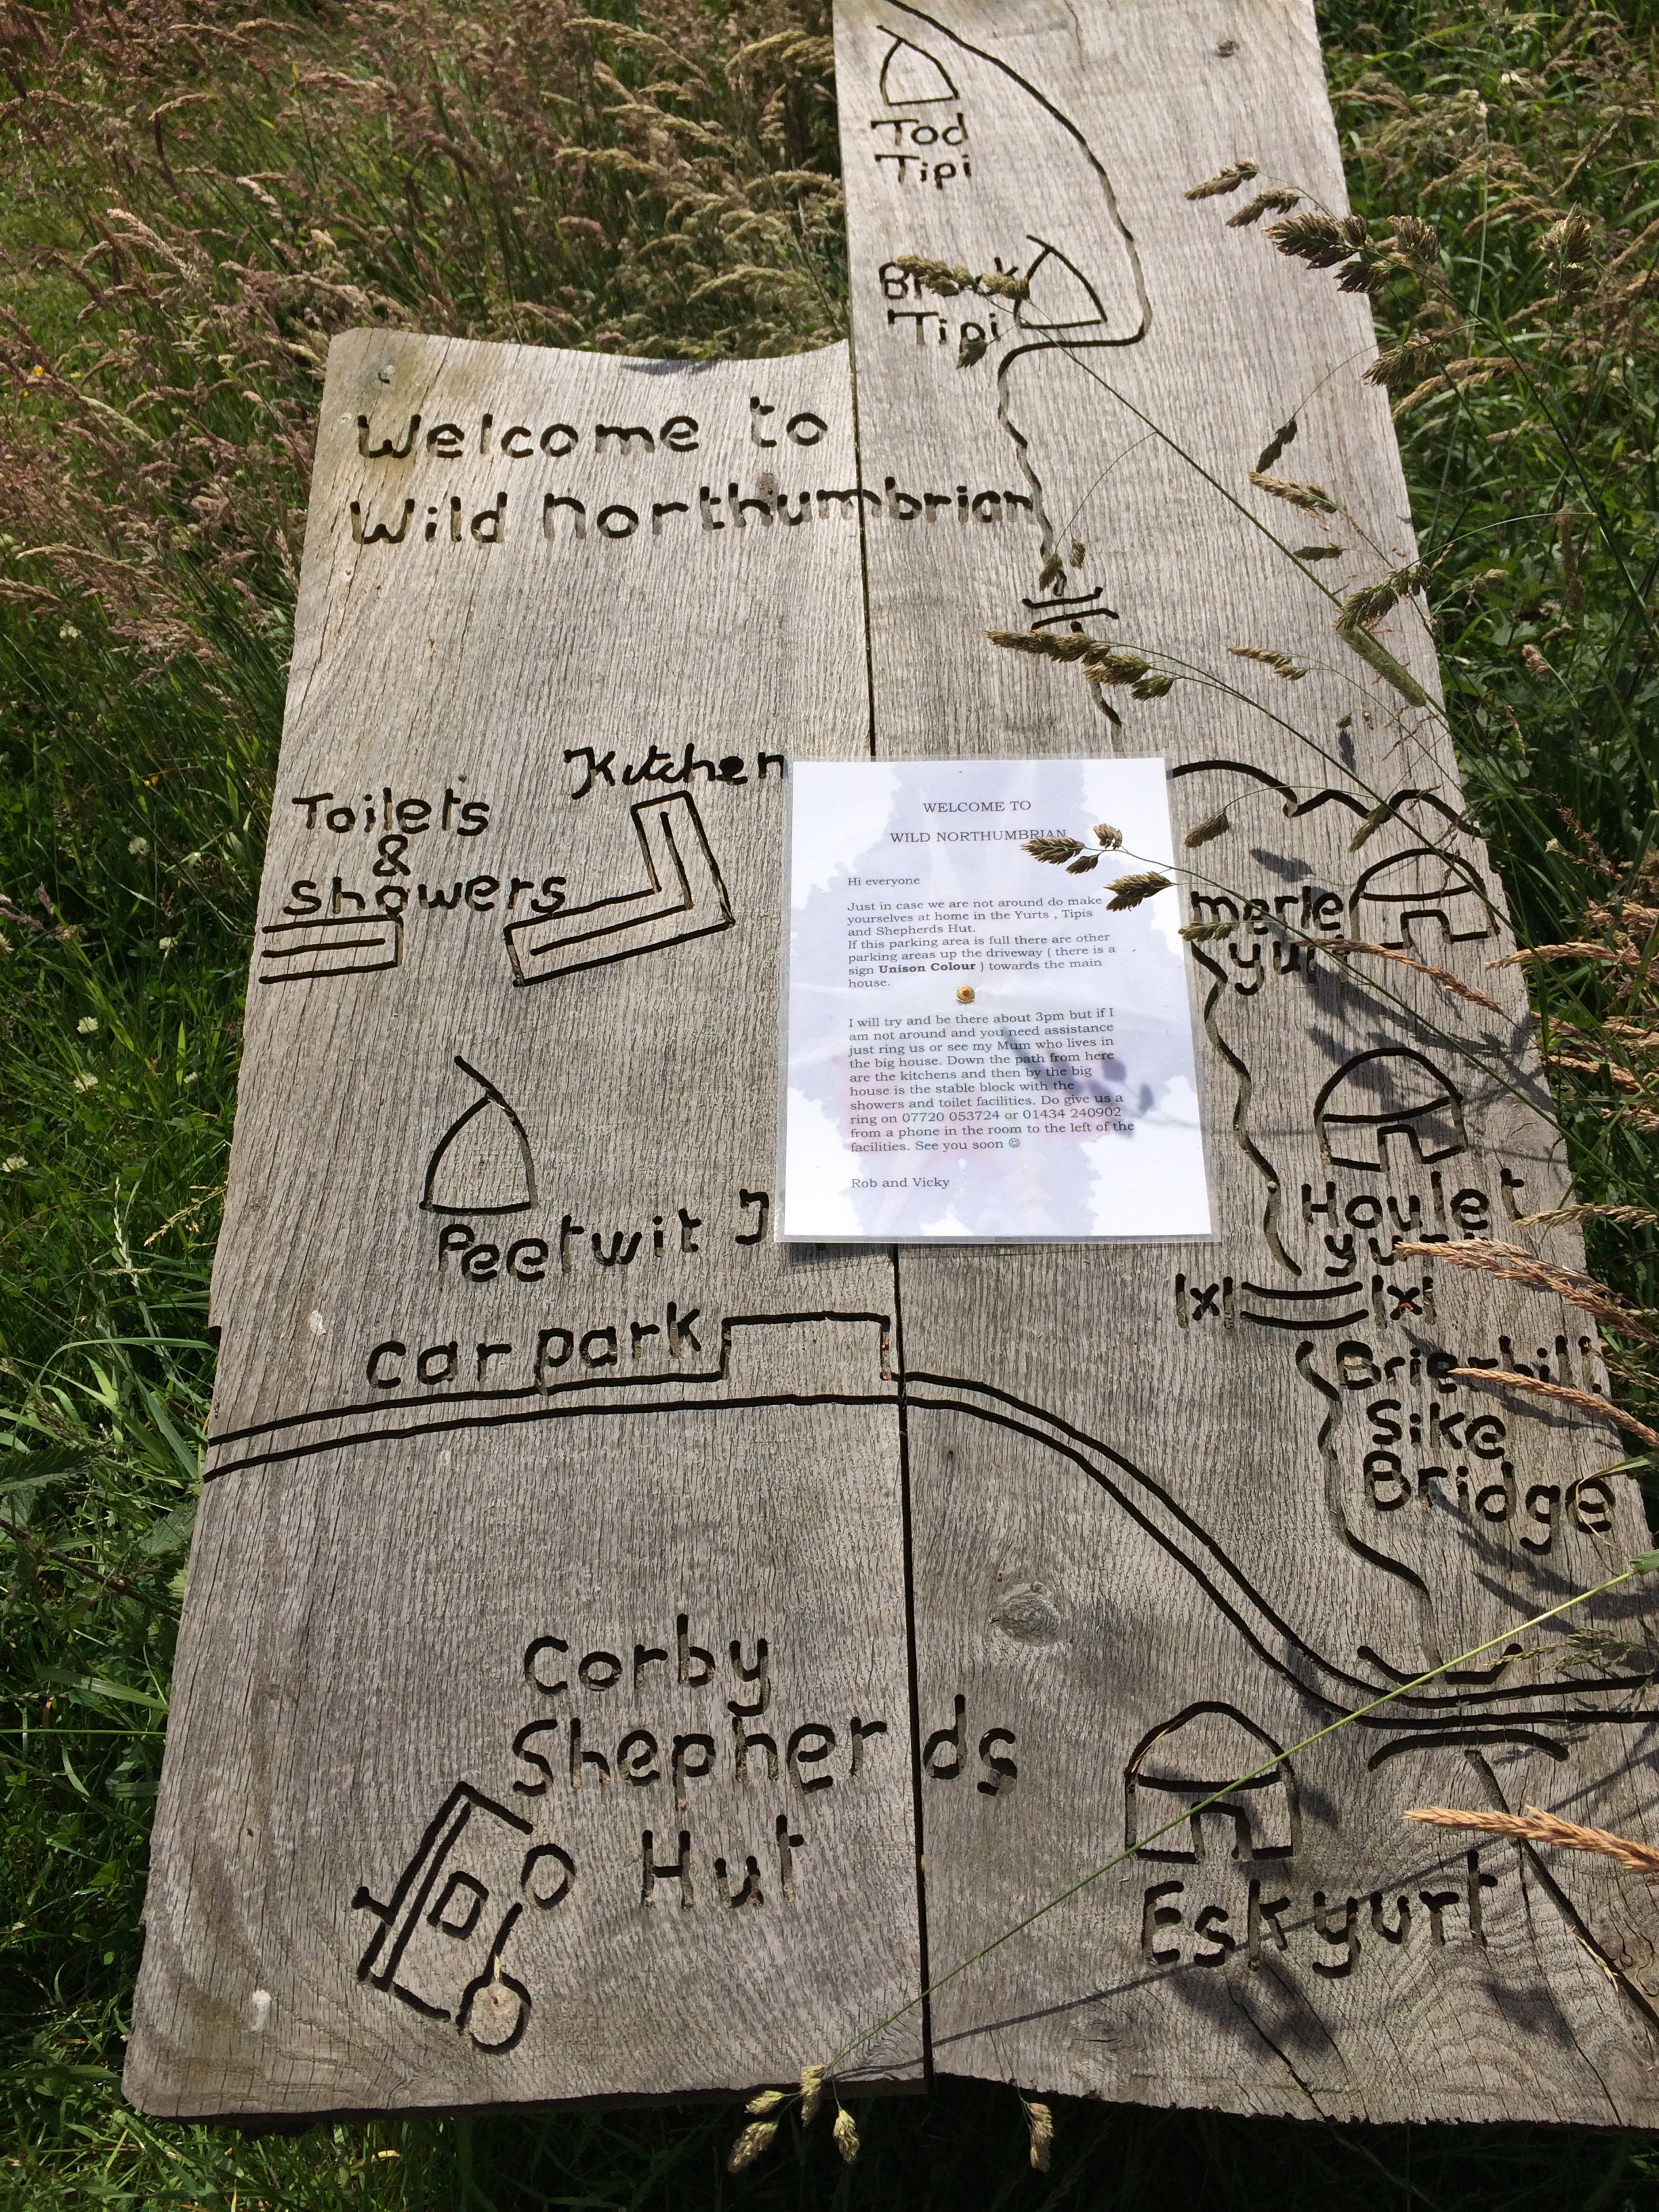 Tod
Tipi
Brock
Tipi
Welcome to
Wild Northumbrian
Kitchen
Toilets
&
Showers
WELCOME TO
WILD NORTHUMBRIAN
Hi everyone
Just in case we are not around do make
yourselves at home in the Yurts , Tipis
and Shepherds Hut.
If this parking area is full there are other
parking areas up the driveway ( there is a
sign Unison Colour ) towards the main
house.
I will try and be there about 3pm but if I
am not around and you need assistance
just ring us or see my Mum who lives in
the big house. Down the path from here
are the kitchens and then by the big
house is the stable block with the
showers and toilet facilities. Do give us a
ring on 07720 053724 or 01434 240902
from a phone in the room to the left of the
facilities. See you soon ☺
Rob and Vicky
merle
yurt
Houlet
yurt
Peetwit
car park
Brierhill
Sike
Bridge
Corby
Shepherds
Hut
Esk yurt